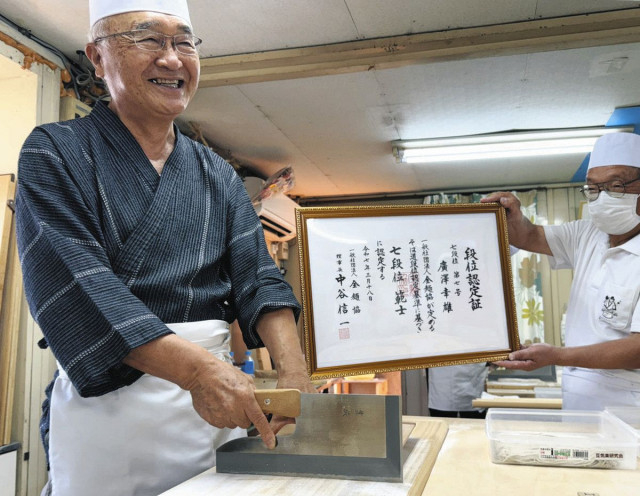 段位認定証
七段位 第七号
廣澤幸雄
一般社団法人全麺協が定める
そば道段位認定基準に基づき
七段位 範士
に認定する
令和七年三月十八日
一般社団法人 全麺協
理事長 中谷信一